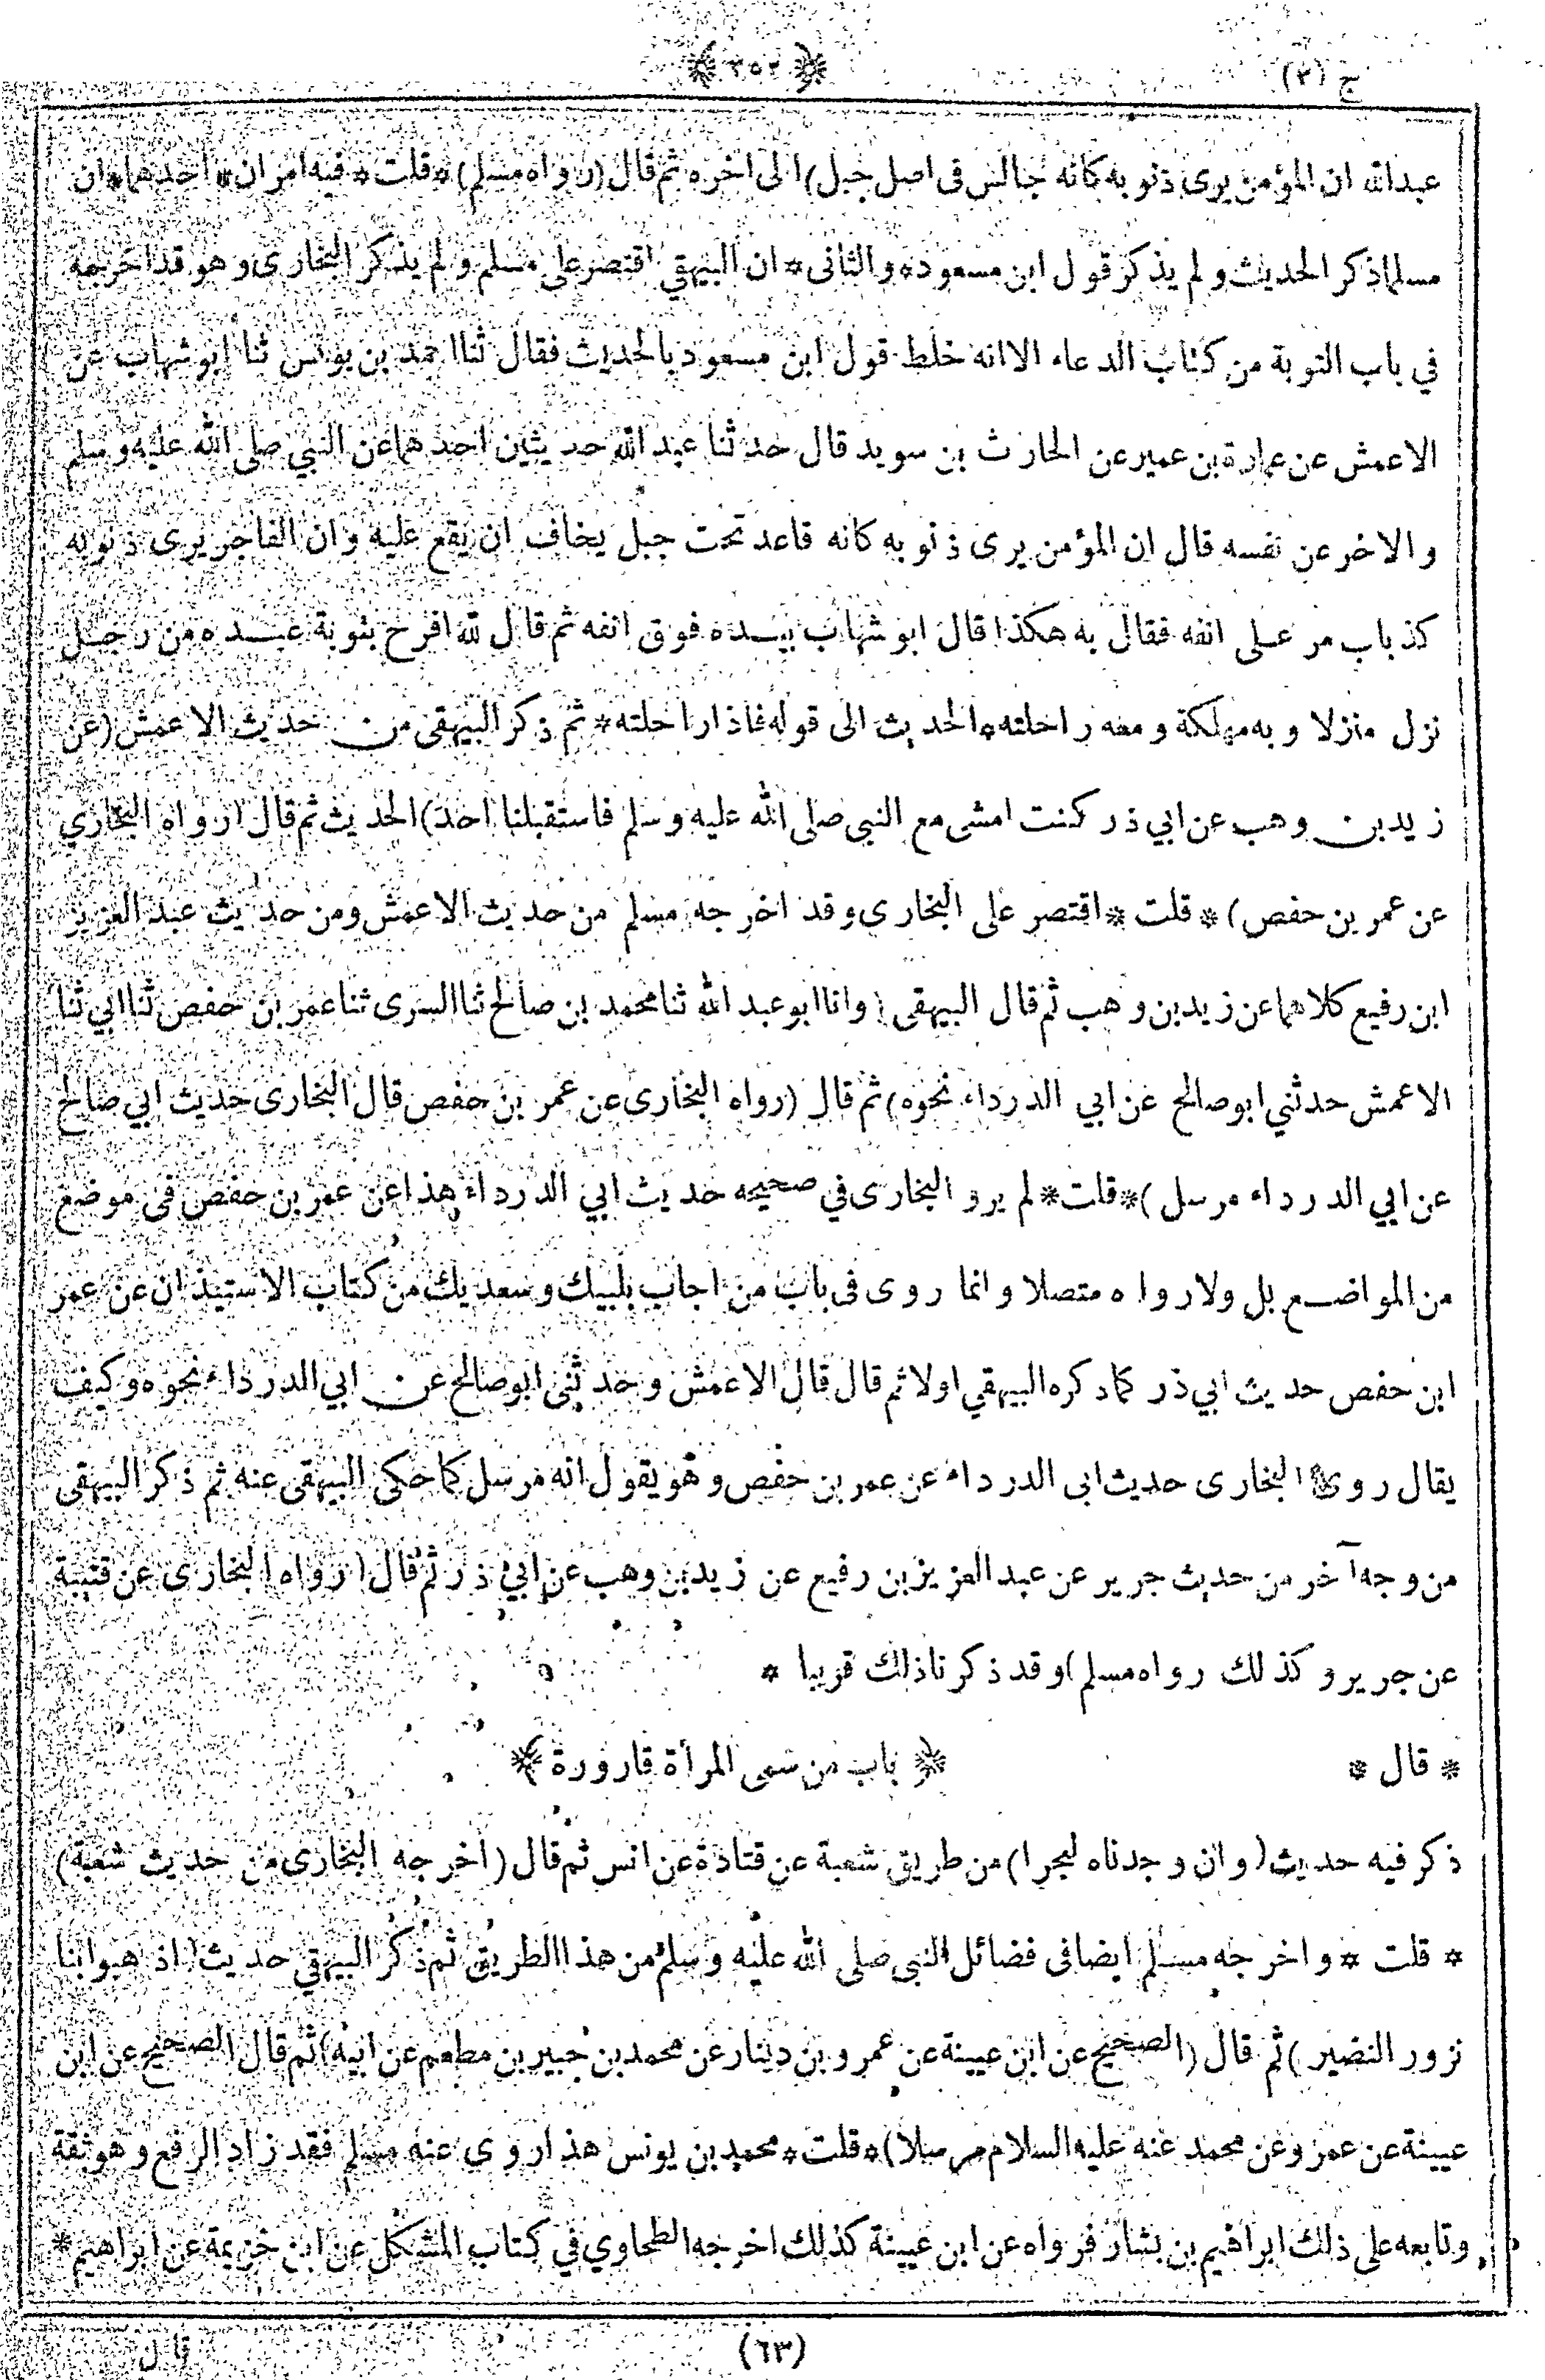 ج (٢)
﴿ ٣٥٢ ﴾
عبدالله ان المؤمن يرى ذنوبه كانه جالس فى اصل جبل) الى اخره ثم قال (رواه مسلم) * قلت * فيه امران * احدهما * ان
مسلما ذكر الحديث ولم يذكر قول ابن مسعود * والثانى * ان البيهقي اقتصر على مسلم ولم يذكر البخارى وهو قد اخرجه
في باب التوبة من كتاب الدعاء الا انه خلط قول ابن مسعود بالحديث فقال ثنا احمد بن يونس ثنا ابو شهاب عن
الاعمش عن عمارة بن عمير عن الحارث بن سويد قال حدثنا عبد الله حديثين احدهما عن النبي صلى الله عليه وسلم
والاخر عن نفسه قال ان المؤمن يرى ذنوبه كانه قاعد تحت جبل يخاف ان يقع عليه وان الفاجر يرى ذنوبه
كذباب مر على انفه فقال به هكذا قال ابو شهاب بيده فوق انفه ثم قال لله افرح بتوبة عبده من رجل
نزل منزلا وبه مهلكة ومعه راحلته * الحديث الى قوله فاذا راحلته * ثم ذكر البيهقى من حديث الاعمش (عن
زيد بن وهب عن ابي ذر كنت امشى مع النبى صلى الله عليه وسلم فاستقبلنا احد) الحديث ثم قال (رواه البخاري
عن عمر بن حفص) * قلت * اقتصر على البخارى وقد اخرجه مسلم من حديث الاعمش ومن حديث عبد العزيز
ابن رفيع كلاهما عن زيد بن وهب ثم قال البيهقى (وانا ابو عبد الله ثنا محمد بن صالح ثنا السرى ثنا عمر بن حفص ثنا ابي ثنا
الاعمش حدثني ابو صالح عن ابي الدرداء نحوه) ثم قال (رواه البخارى عن عمر بن حفص قال البخارى حديث ابي صالح
عن ابي الدرداء مرسل) * قلت * لم يرو البخارى في صحيحه حديث ابي الدرداء هذا عن عمر بن حفص فى موضع
من المواضع بل ولا رواه متصلا وانما روى فى باب من اجاب بلبيك وسعديك من كتاب الاستيذان عن عمر
ابن حفص حديث ابي ذر كما ذكره البيهقي اولا ثم قال قال الاعمش وحدثنى ابو صالح عن ابي الدرداء نحوه وكيف
يقال روى البخارى حديث ابى الدرداء عن عمر بن حفص وهو يقول انه مرسل كما حكى البيهقى عنه ثم ذكر البيهقى
من وجه آخر من حديث جرير عن عبد العزيز بن رفيع عن زيد بن وهب عن ابي ذر ثم قال (رواه البخارى عن قتيبة
عن جرير وكذلك رواه مسلم) وقد ذكرنا ذلك قريبا *
* قال * ﴿ باب من سمى المرأة قارورة ﴾
ذكر فيه حديث (وان وجدناه لبحرا) من طريق شعبة عن قتادة عن انس ثم قال (اخرجه البخارى من حديث شعبة)
* قلت * واخرجه مسلم ايضا فى فضائل النبى صلى الله عليه وسلم من هذا الطريق ثم ذكر البيهقي حديث (اذهبوا بنا
نزور النضير) ثم قال (الصحيح عن ابن عيينة عن عمرو بن دينار عن محمد بن جبير بن مطعم عن ابيه) ثم قال (الصحيح عن ابن
عيينة عن عمرو عن محمد عنه عليه السلام مرسلا) * قلت * محمد بن يونس هذا روى عنه مسلم فقد زاد الرفع وهو ثقة
وتابعه على ذلك ابراهيم بن بشار فرواه عن ابن عيينة كذلك اخرجه الطحاوي في كتاب المشكل عن ابن خزيمة عن ابراهيم *
(٦٣)
قال